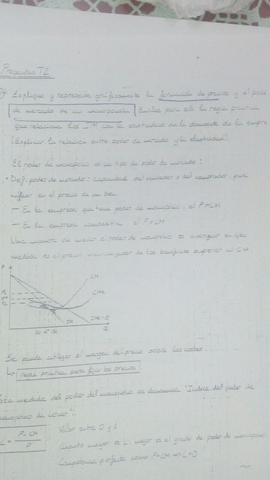 Preguntas T2
Explique y represente gráficamente la formación de precios y el poder
de mercado de un monopolista. Emplee para ello la regla práctica
que relaciona con la elasticidad de la demanda de la empresa
(explicar la relación entre poder de mercado y la elasticidad).
El poder de monopolio es un tipo de poder de mercado:
• Def. poder de mercado: capacidad del vendedor o del comprador para
influir en el precio de un bien.
— En la empresa que tiene poder de monopolio, el P>CM
— En la empresa competitiva, el P=CM
Una manera de medir el poder de monopolio es averiguar en que
medida es el precio maximizador de los beneficios superior al CM
P
CM
CMe
DMe=D
IM
Q
Se puede utilizar el margen del precio sobre los costes
↳ regla práctica para fijar los precios
Esta medida del poder del monopolio se denomina "Índice del poder de
monopolio de Lerner":
L = P-CM / P
Valor entre 0 y 1
Cuanto mayor es L, mayor es el grado de poder de monopolio
Competencia perfecta como P=CM => L=0